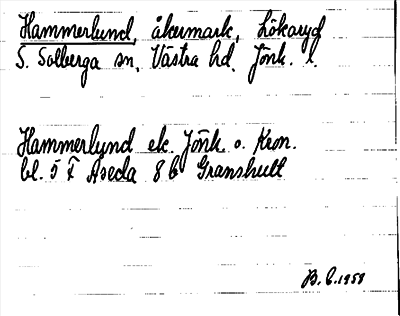 Hammerlund, åkermark, Lökaryd
S. Solberga sn, Västra hd. Jönk. l.
Hammerlynd ek. Jönk o. Kron.
bl. 5 F Aseda 8 b Granshult
B. C. 1958